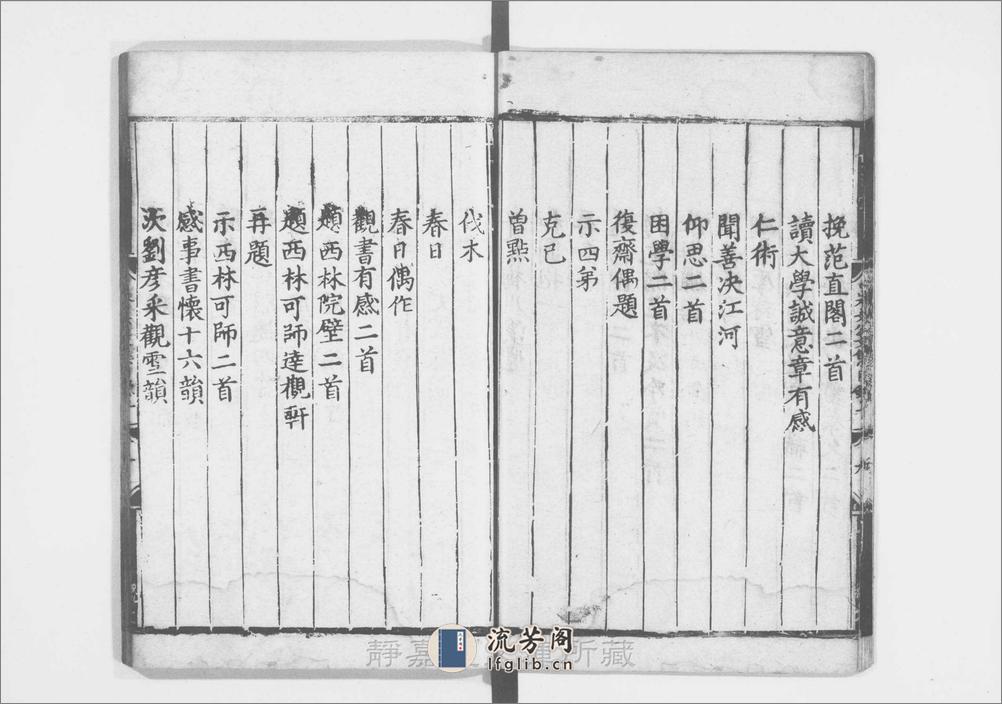 挽范直閣二首
讀大學誠意章有感
仁術
聞善决江河
仰思二首
困學二首
復齋偶題
示四弟
克己
曽㸃
伐木
春日
春日偶作
觀書有感二首
題西林院壁二首
題西林可師達觀軒
再題
示西林可師二首
感事書懷十六韻
次劉彦采觀雪韻
靜嘉
所藏
流芳阁
lfglib.cn